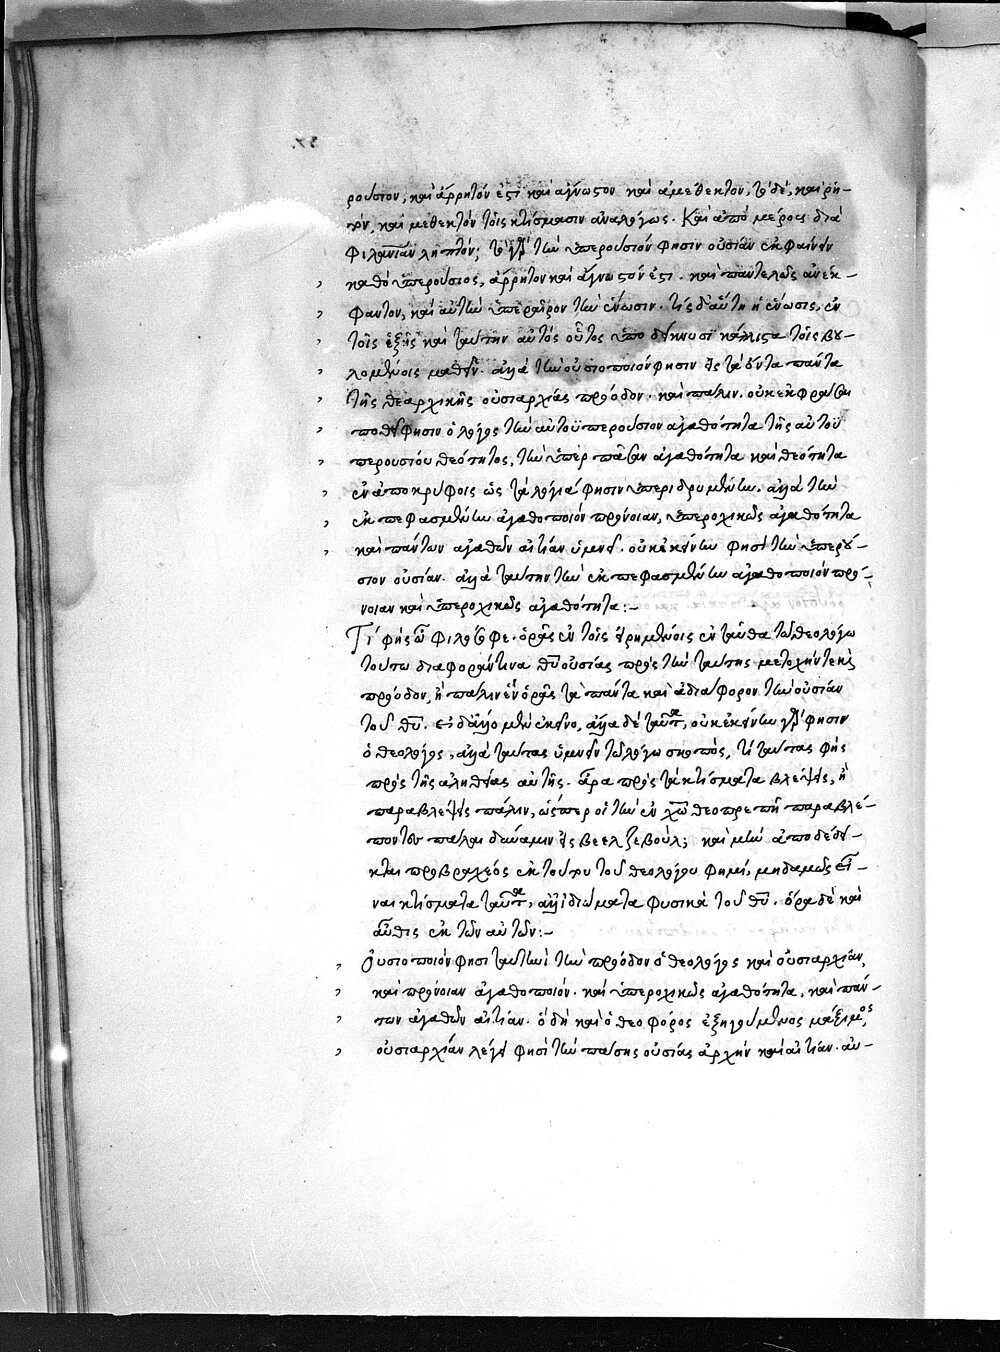 ρούσιον, καὶ ἄρρητόν ἐστι καὶ ἄγνωστον καὶ ἀμέθεκτον, τὸ δέ, καὶ ῥη-
τόν, καὶ μεθεκτὸν τοῖς κτίσμασιν ἀναλόγως. Καὶ ἀπὸ μέρους διὰ
φιλανίαν ληπτόν; τὸ γὰρ τὴν ὑπερούσιόν φησιν οὐσίαν ἐκφαίνειν
καθὸ ὑπερούσιος, ἄρρητον καὶ ἄγνωστόν ἐστι. καὶ παντελῶς ἀνέκ-
φαντον, καὶ αὐτὴν ὑπεραῖρον τὴν ἕνωσιν. τίς δ' αὕτη ἡ ἕνωσις, ἐν
τοῖς ἑξῆς καὶ ταύτην αὐτὸς οὗτος ὑποδείκνυσι κάλλιστα τοῖς βου-
λομένοις μαθεῖν. ἀλλὰ τὴν οὐσιοποιόν φησιν εἰς τὰ ὄντα πάντα
τῆς θεαρχικῆς οὐσιαρχίας πρόοδον. καὶ πάλιν. οὐκ ἐκφράσαι
ποθεῖ φησιν ὁ λόγος τὴν αὐτοϋπερούσιον ἀγαθότητα τῆς αὐτοϋ
περουσίου θεότητος, τὴν ὑπὲρ πᾶσαν ἀγαθότητα καὶ θεότητα
ἐν ἀποκρύφοις ὡς τὰ λόγιά φησιν ὑπεριδρυμένην. ἀλλὰ τὴν
ἐκπεφασμένην ἀγαθοποιὸν πρόνοιαν, ὑπεροχικῶς ἀγαθότητα
καὶ πάντων ἀγαθῶν αἰτίαν ὑμνεῖ. οὐκ ἐκείνην φησὶ τὴν ὑπερού-
σιον οὐσίαν. ἀλλὰ ταύτην τὴν ἐκπεφασμένην ἀγαθοποιὸν πρό-
νοιαν καὶ ὑπεροχικῶς ἀγαθότητα:-
Τί φὴς ὦ φιλόσοφε. ὁρᾷς ἐν τοῖς εἰρημένοις ἐνταῦθα τῷ θεολόγῳ
τούτῳ διαφοράν τινα θυ οὐσίας πρὸς τὴν ταύτης μετοχὴν τε καὶ
πρόοδον, ἢ πάλιν ἓν ὁρᾷς τὰ πάντα καὶ ἀδιάφορον τὴν οὐσίαν
τοῦ θυ. εἰ δ' ἄλλο μὲν ἐκεῖνο, ἄλλα δὲ ταῦτα, οὐκ ἐκείνην γάρ φησιν
ὁ θεολόγος, ἀλλὰ ταύτας ὑμνεῖν τῷ λόγῳ σκοπός, τί ταύτας φὴς
πρὸς τῆς ἀληθείας αὐτῆς. ἆρα πρὸς τὰ κτίσματα βλέψεις, ἢ
παραβλέψεις πάλιν, ὥσπερ οἱ τὴν ἐν χω θεοπρεπῆ παραβλέ-
ποντες πάλαι δύναμιν εἰς βεελζεβούλ; καὶ μὴν ἀποδέδει-
κται πρὸ βραχέος ἐκ τούτου τοῦ θεολόγου φημί, μηδαμῶς εἶ-
ναι κτίσματα ταῦτα, ἀλλ' ἰδιώματα φυσικὰ τοῦ θυ. ὅρα δὲ καὶ
αὖθις ἐκ τῶν αὐτῶν:-
Οὐσιοποιόν φησι ταυτηνὶ τὴν πρόοδον ὁ θεολόγος καὶ οὐσιαρχίαν,
καὶ πρόνοιαν ἀγαθοποιόν. καὶ ὑπεροχικῶς ἀγαθότητα, καὶ πάν-
των ἀγαθῶν αἰτίαν. ὃ δὴ καὶ ὁ θεοφόρος ἐξηγούμενος μάξιμος,
οὐσιαρχίαν λέγει φησὶ τὴν πάσης οὐσίας ἀρχὴν καὶ αἰτίαν. αυ-